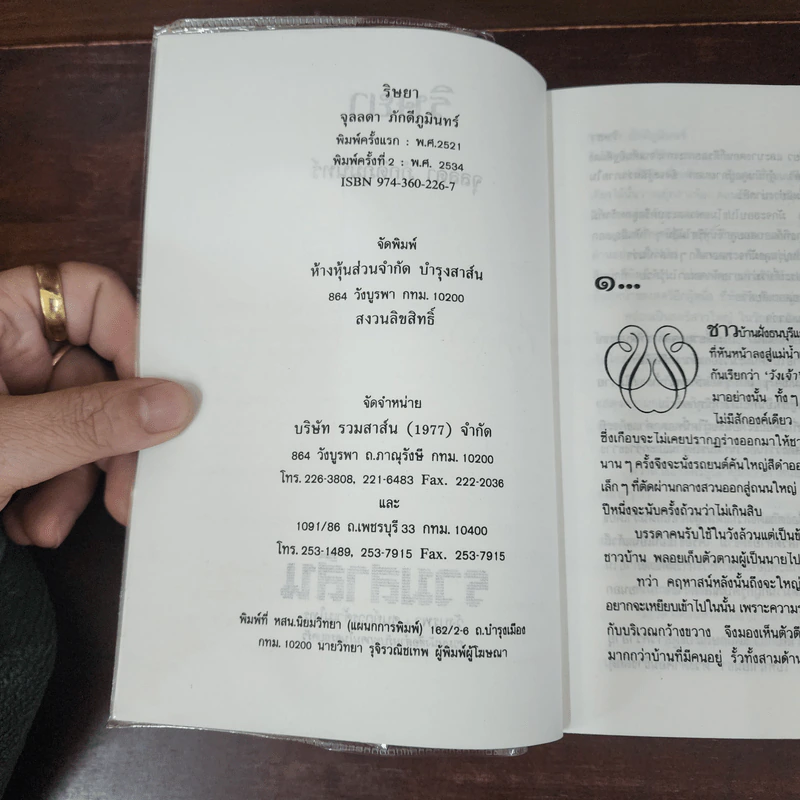 ริษยา
จุลลดา ภักดีภูมินทร์
พิมพ์ครั้งแรก : พ.ศ.2521
พิมพ์ครั้งที่ 2 : พ.ศ. 2534
ISBN 974-360-226-7
จัดพิมพ์
ห้างหุ้นส่วนจำกัด บำรุงสาส์น
864 วังบูรพา กทม. 10200
สงวนลิขสิทธิ์
จัดจำหน่าย
บริษัท รวมสาส์น (1977) จำกัด
864 วังบูรพา ถ.ภาณุรังษี กทม. 10200
โทร. 226-3808, 221-6483 Fax. 222-2036
และ
1091/86 ถ.เพชรบุรี 33 กทม. 10400
โทร. 253-1489, 253-7915 Fax. 253-7915
พิมพ์ที่ หสน.นิยมวิทยา (แผนกการพิมพ์) 162/2-6 ถ.บำรุงเมือง
กทม. 10200 นายวิทยา รุจิรวณิชเทพ ผู้พิมพ์ผู้โฆษณา
๑...
ชาวบ้านฝั่งธนบุรีแ
ที่หันหน้าลงสู่แม่น้ำ
กันเรียกว่า 'วังเจ้า'
มาอย่างนั้น ทั้ง ๆ
ไม่มีสักองค์เดียว
ซึ่งเกือบจะไม่เคยปรากฏร่างออกมาให้ชา
นาน ๆ ครั้งจึงจะนั่งรถยนต์คันใหญ่สีดำออ
เล็ก ๆ ที่ตัดผ่านกลางสวนออกสู่ถนนใหญ่
ปีหนึ่งจะนับครั้งถ้วนว่าไม่เกินสิบ
บรรดาคนรับใช้ในวังล้วนแต่เป็นข้
ชาวบ้าน พลอยเก็บตัวตามผู้เป็นนายไป
ทว่า คฤหาสน์หลังนั้นถึงจะใหญ่
อยากจะเหยียบเข้าไปในนั้น เพราะความร
กับบริเวณกว้างขวาง จึงมองเห็นตัวตึ
มากกว่าบ้านที่มีคนอยู่ รั้วทั้งสามด้าน